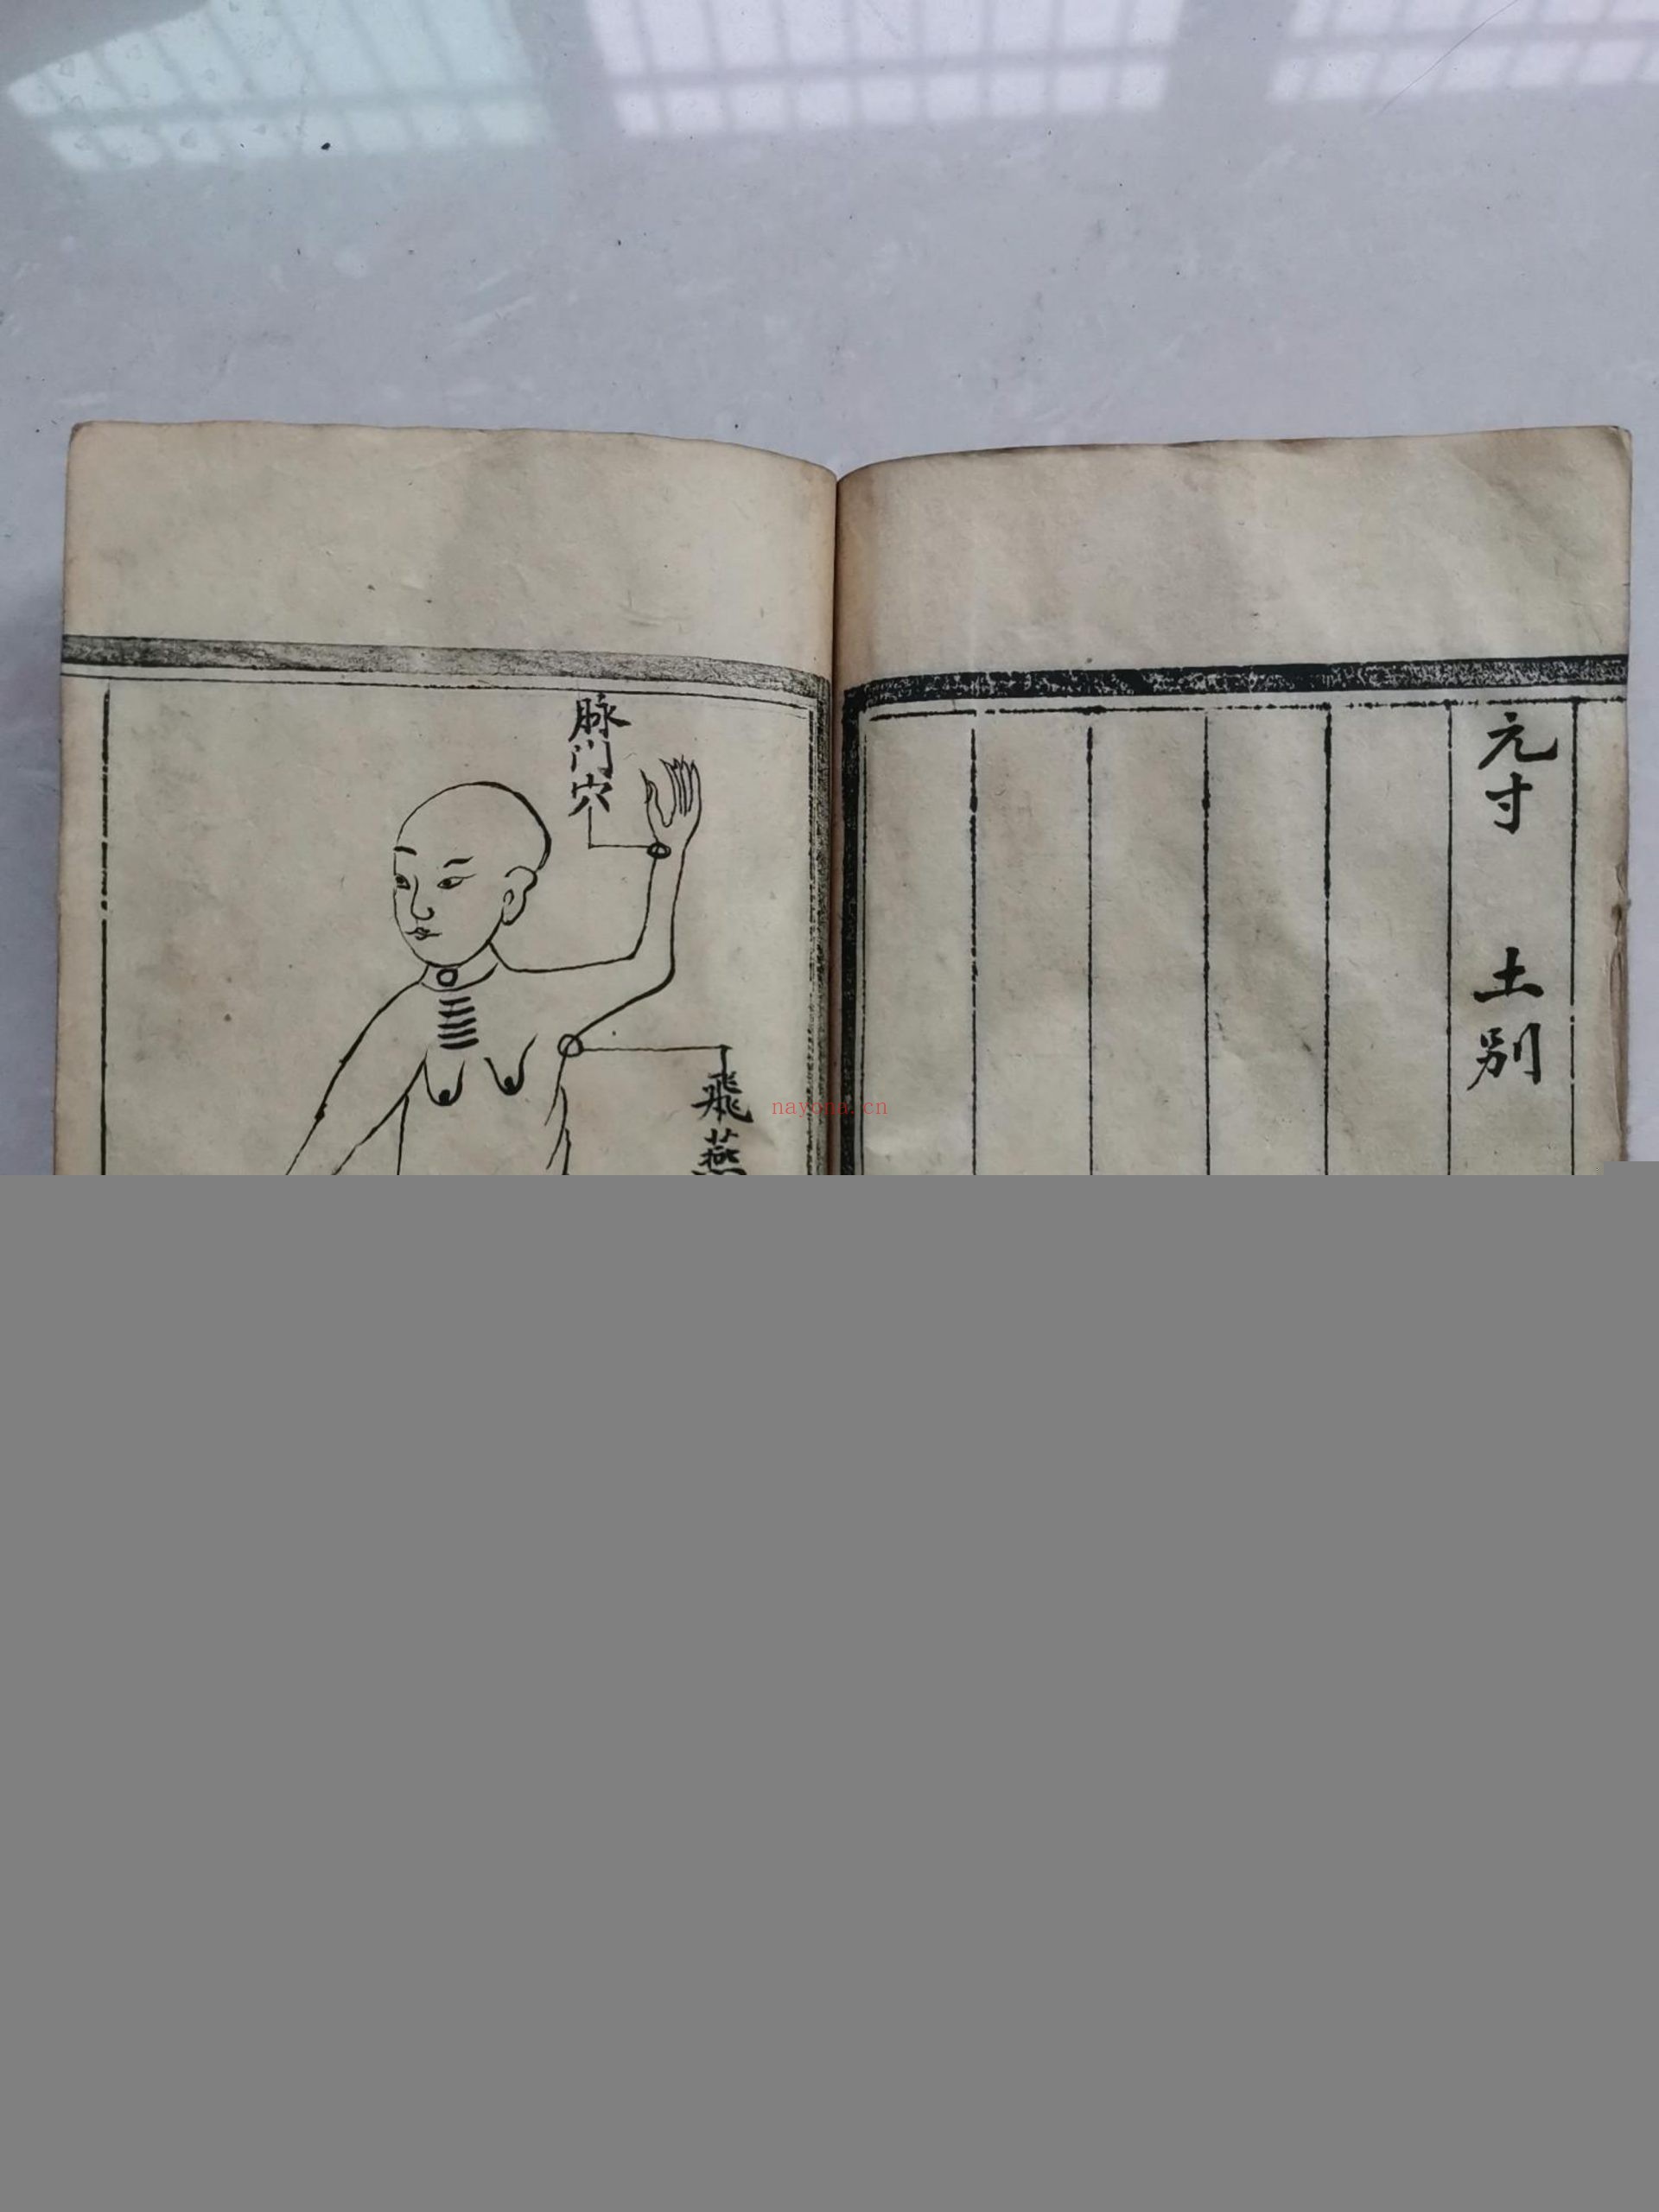 元寸 土别
脉门穴
飛燕
nayona.cn